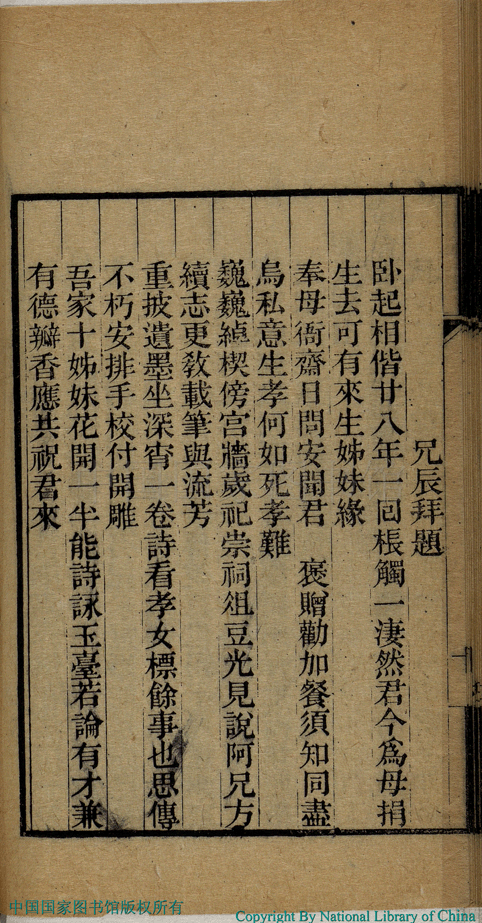 兄辰拜題
卧起相偕廿八年一回棖觸一淒然君今爲母捐
生去可有來生姊妹緣
奉母衙齋日問安聞君 褒贈勸加餐須知同盡
烏私意生孝何如死孝難
巍巍綽楔傍宮牆歲祀崇祠俎豆光見說阿兄方
續志更敎載筆與流芳
重披遺墨坐深宵一卷詩看孝女標餘事也思傳
不朽安排手校付開雕
吾家十姊妹花開一半能詩詠玉臺若論有才兼
有德瓣香應共祝君來
中国国家图书馆版权所有
Copyright By National Library of China